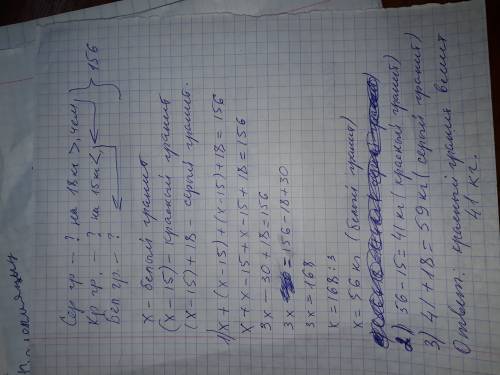 Сер гр. - ? на 18 кг >, чем
Кр гр. - ? на 15 кг <, } 156
Бел гр. - ?
x - белый гранит
(x - 15) - красный гранит
(x - 15) + 18 - серый гранит.
1) x + (x - 15) + (x - 15) + 18 = 156
x + x - 15 + x - 15 + 18 = 156
3x - 30 + 18 = 156
3x = 156 - 18 + 30
3x = 168
x = 168 : 3
x = 56 кг (белый гранит)
2) 56 - 15 = 41 кг (красный гранит)
3) 41 + 18 = 59 кг (серый гранит)
Ответ: красный гранит весит
41 кг.